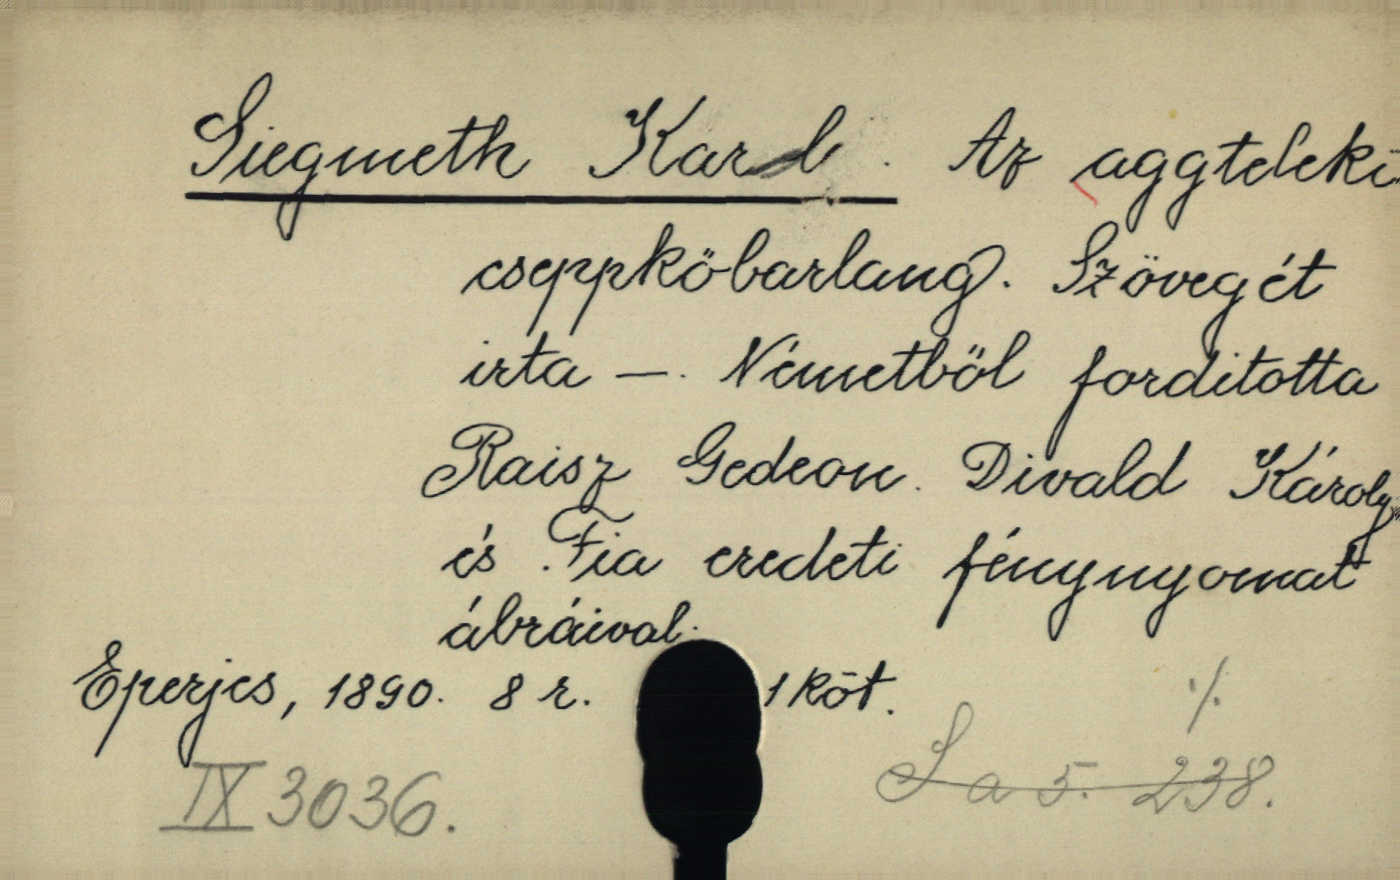 Siegmeth Karl. Az aggteleki
cseppkőbarlang. Szövegét
irta —. Németből forditotta
Raisz Gedeon. Divald Károly
és Fia eredeti fénynyomat
ábráival.
Eperjes, 1890. 8 r. 1 köt.
IX 3036.
S a 5. 238.